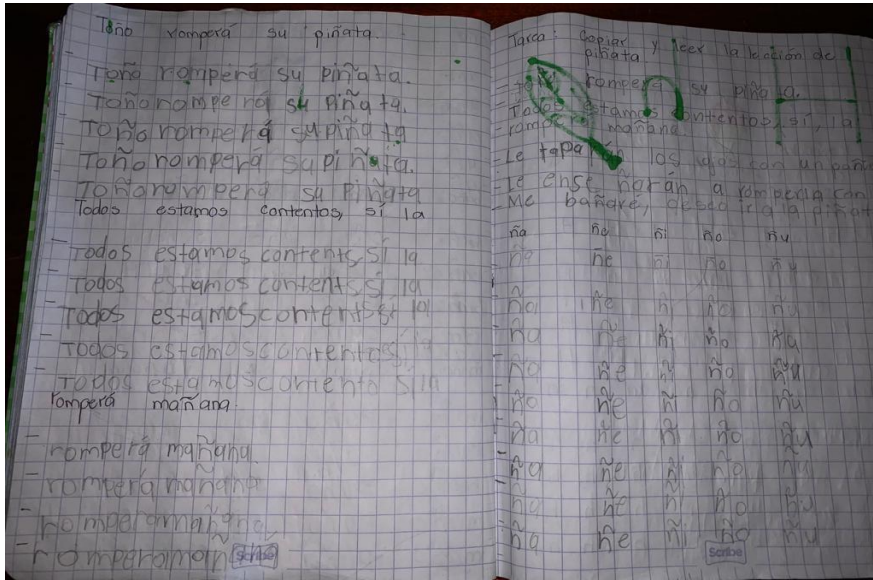 Toño romperá su piñata.
Toño romperá su piñata.
Toño romperá su piñata.
Toño romperá su piñata
Toño romperá su piñata.
Toño romperá su piñata
Todos estamos contentos, sí la
Todos estamos contents, sí la
Todos estamos contents, sí la
Todos estamos contents sí la
Todos estamos contentos, la
Todos estamos contento sí la
romperá mañana.
romperá mañana.
romperá mañana
romperamañana
romperamañ
Scribe
Tarea: Copiar y leer la lección de
piñata
romperá su piñata.
Todos estamos contentos, sí, la
mañana
Le taparán los ojos con un
Le enseñarán a romperla con
Me bañaré, deseo ir a la piñat
ña ñe ñi ño ñu
ña ñe ñi ño ñu
ña ñe ñi ño ñu
ña ñe ñi ño ñu
ña ñe ñi ño ñu
ña ñe ñi ño ñu
ña ñe ñi ño ñu
ña ñe ñi ño ñu
ña ñe ñi ño ñu
ña ñe ñi ño ñu
Scribe